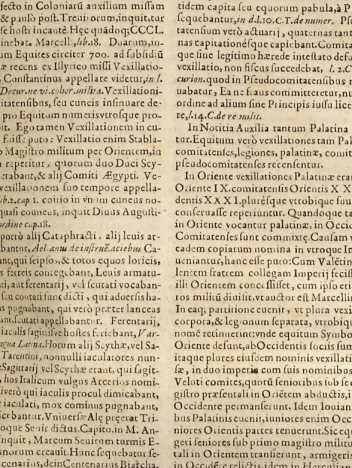 fecto in Coloniarū auxilium missam
& paulò post. Treuirorum, inquit, tur
se hosti incautè. Hęc quòdoq; CCCL.
inebat. Marcell. lib. 18. Duarum, in-
um Equites circiter 700. ad subsidiū
æ recens ex Illyrico missi Vexillatio-
Constantinus appellare videtur, in l.
itatensibus, seu cuneis insinuare de-
pro Equitum numeris vtrosque pro-
it. Ego tamen Vexillationem in cu-
fuisse puto: Vexillatio enim Stabla-
o Magistro militum per Orientem, in
repetitur, quorum duo Duci Scy-
tabant, & alij Comiti Ægypti. Ve-
vexillationem suo tempore appella-
quasi couneus, inquit Diuus Augusti-
ordine cap. 18.
verò alij Cataphracti. alij leuis ar-
ant, qui seipso, & totos equos loricis,
s ferreis contegebant, Leuis armatu-
ni, aut ferentarij, vel scutati vocaban-
pugnabant, qui verò præter lanceas
ant, lancearij appellabantur. Ferentarij,
iaculis sagittisue hostes furebant, Var-
ngua Latina. Horum alij Scythæ, vel Sa-
Tarentini, nonnulli iaculatores nun-
Sagittarij vel Scythæ erant, qui sagit-
hos Italicum vulgus Arcerios nomi-
i verò qui iaculis procul dimicabant,
iaculatis, mox cominus pugnabant,
icebantur. Vniuersæ Alę pręerat Tri-
oque Seuir dictus. Capitolin. M. An-
nquit, Marcum Seuirum turmis E-
norum creauit. Hunc sequebatur se-
cadarchus, dein Centenarius Biatcha-
tidem capita seu equorum pabula, à P
sequebantur, in d. l. 10. C. T. de numer. Pse
tatensium verò actuarij, quaternas tant
nas capitationésque capiebant. Comitat
que sine legitimo hærede intestato defu
vexillatio, non fiscus succedebat, l. 2. C
curion. quod in Pseudocomitatensibus t
uabatur, Ea ne fraus committeretur, nu
ordine ad alium sine Principis iussu lice
te, l. 14. C. de re milit.
In Notitia Auxilia tantum Palatina
tur. Equitum verò vexillationes tam Pal
comitatenses, legiones, palatinæ, comita
pseudocomitatenses recensentur.
In Oriente vexillationes Palatinæ eran
Oriente IX. comitatensis Orientis X X
dentis X X X I. plurésque vtrobique suu
conseruasse reperiuntur. Quandoque ta
in Oriente vocantur palatinæ, in Occid
Comitatenses sunt commixtę. Causam v
eadem copiarum nomina in vtroque Im
ueniantur, hanc esse puto: Cum Valētin
lentem fratrem collegam Imperij fecisse
illi Orientem concessisset, cum ipso etia
tros militū diuisit. vt auctor est Marcellin
In eaq; partitione euenit, vt plura vexi
corpora, & legionum separata, vtrobiqu
nomē retinuerint vnde equitum Symbol
Oriente desunt, ab Occidentis sociis sunt
itaque plures eiusdem nominis vexillati
sæ, in duo imperia cum suis nominibus,
Veloti comites, quorū senioribus sub se d
gistro præsentali in Oriētem abductis, in
Occidente permanserunt. Idem Iouiani
bus Palatinis euenit, iuniores enim Occi
niores Orientis partes tenuerunt. Sic equ
geri seniores sub primo magistro militū
tali in Orientem transierunt, armigeri